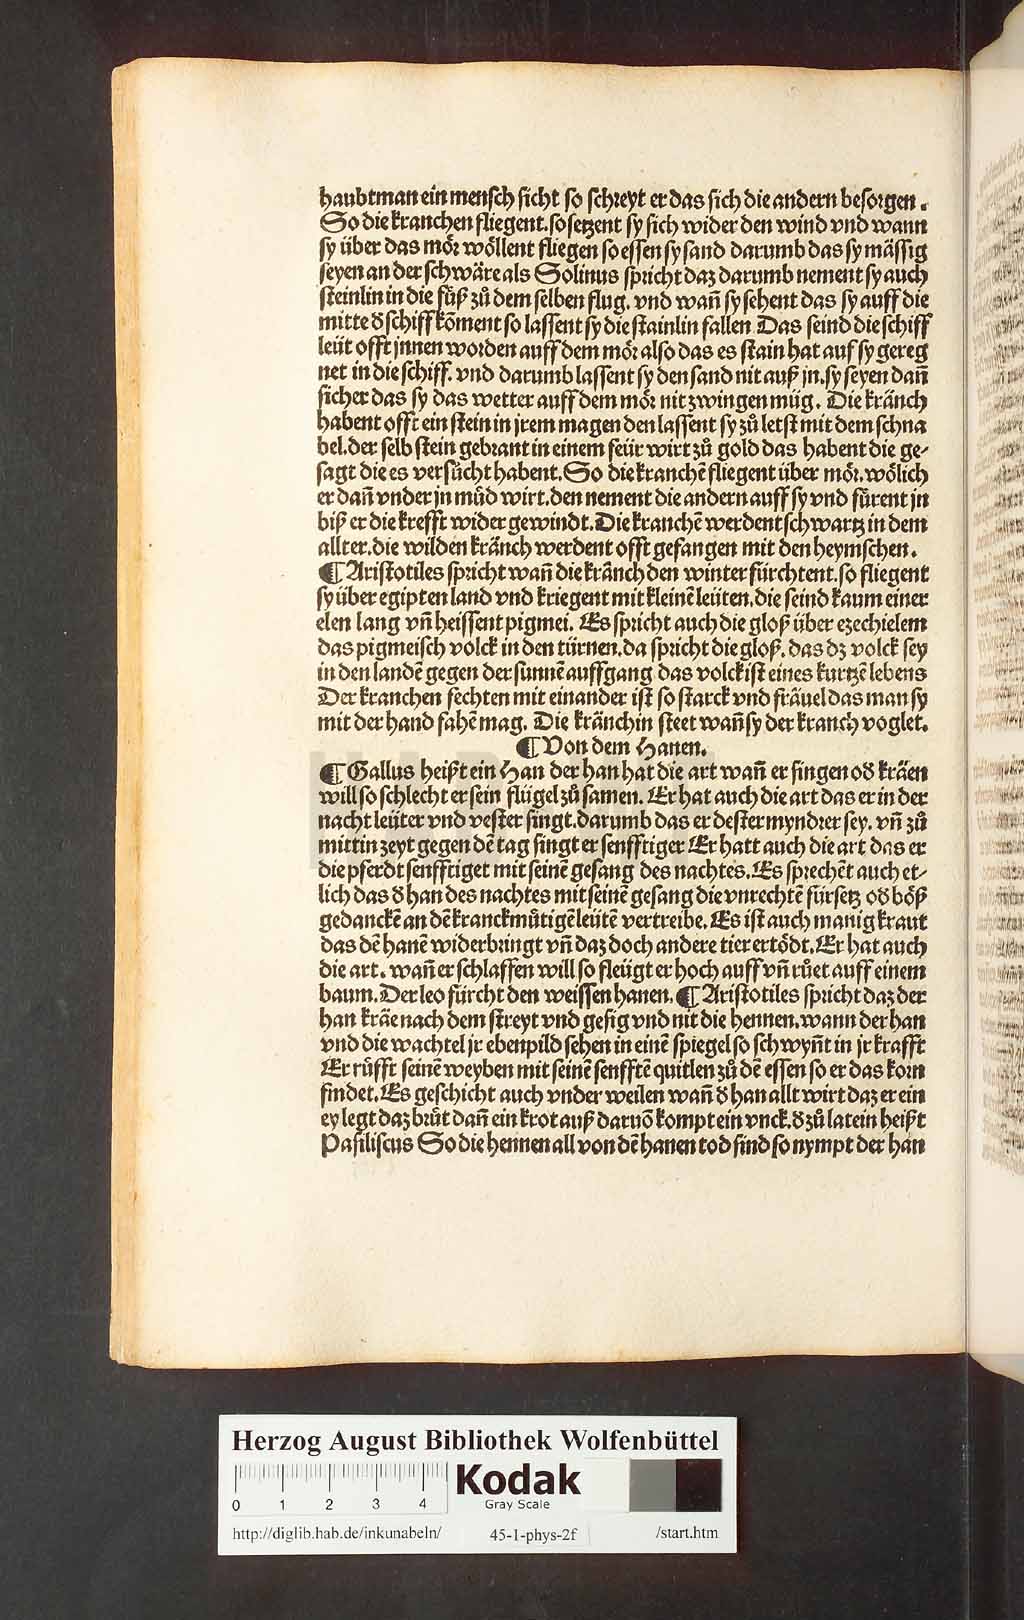 haubtman ein mensch sicht so schreyt er das sich die andern besorgen.
So die kranchen fliegent. so setzent sy sich wider den wind vnd wann
sy über das mör wöllent fliegen so essen sy sand darumb das sy mässig
seyen an der schwäre als Solinus spricht daz darumb nement sy auch
steinlin in die fůß zů dem selben flug. vnd wañ sy sehent das sy auff die
mitte d̕ schiff kōment so lassent sy die stainlin fallen Das seind die schiff
leüt offt jnnen worden auff dem mör also das es stain hat auf sy gereg
net in die schiff. vnd darumb lassent sy den sand nit auß jn. sy seyen dañ
sicher das sy das wetter auff dem mör nit zwingen müg. Die kränch
habent offt ein stein in jrem magen den lassent sy zů letst mit dem schna
bel. der selb stein gebrant in einem feür wirt zů gold das habent die ge⸗
sagt die es versůcht habent. So die kranchē fliegent über mör. wölich
er dañ vnder jn můd wirt. den nement die andern auff sy vnd fürent jn
biß er die krefft wider gewindt. Die kranchē werdent schwartz in dem
allter. die wilden kränch werdent offt gefangen mit den heymschen.
¶ Aristotiles spricht wañ die kränch den winter fürchtent. so fliegent
sy über egipten land vnd kriegent mit kleinē leüten. die seind kaum einer
elen lang vñ heissent pigmei. Es spricht auch die gloß über ezechielem
das pigmeisch volck in den türnen. da spricht die gloß. das dz volck sey
in den landē gegen der sunnē auffgang das volck ist eines kurtzē lebens
Der kranchen fechten mit einander ist so starck vnd fräuel das man sy
mit der hand fahē mag. Die kränchin steet wañ sy der kranch voglet.
¶ Von dem Hanen.
¶ Gallus heißt ein Han der han hat die art wañ er singen od̕ kräen
will so schlecht er sein flügel zů samen. Er hat auch die art das er in der
nacht leüter vnd vester singt. darumb das er dester myndrer sey. vñ zů
mittin zeyt gegen dē tag singt er senfftiger Er hatt auch die art das er
die pferdt senfftiget mit seinē gesang des nachtes. Es sprechēt auch et⸗
lich das d̕ han des nachtes mit seinē gesang die vnrechtē fürsetz od̕ böß
gedanckē an dē kranckmůtigē leütē vertreibe. Es ist auch manig kraut
das dē hanē widerbringt vñ daz doch andere tier ertödt. Er hat auch
die art. wañ er schlaffen will so fleügt er hoch auff vñ růet auff einem
baum. Der leo fürcht den weissen hanen. ¶ Aristotiles spricht daz der
han kräe nach dem streyt vnd gesig vnd nit die hennen. wann der han
vnd die wachtel jr ebenpild sehen in einē spiegel so schwyñt in jr krafft
Er růfft seinē weyben mit seinē senfftē quitlen zů dē essen so er das korn
findet. Es geschicht auch vnder weilen wañ d̕ han allt wirt daz er ein
ey legt daz brůt dañ ein krot auß daruō kompt ein vnck. d̕ zů latein heißt
Pasiliscus So die hennen all von dē hanen tod sind so nympt der han
Herzog August Bibliothek Wolfenbüttel
0 1 2 3 4
Kodak
Gray Scale
http://diglib.hab.de/inkunabeln/ 45-1-phys-2f /start.htm